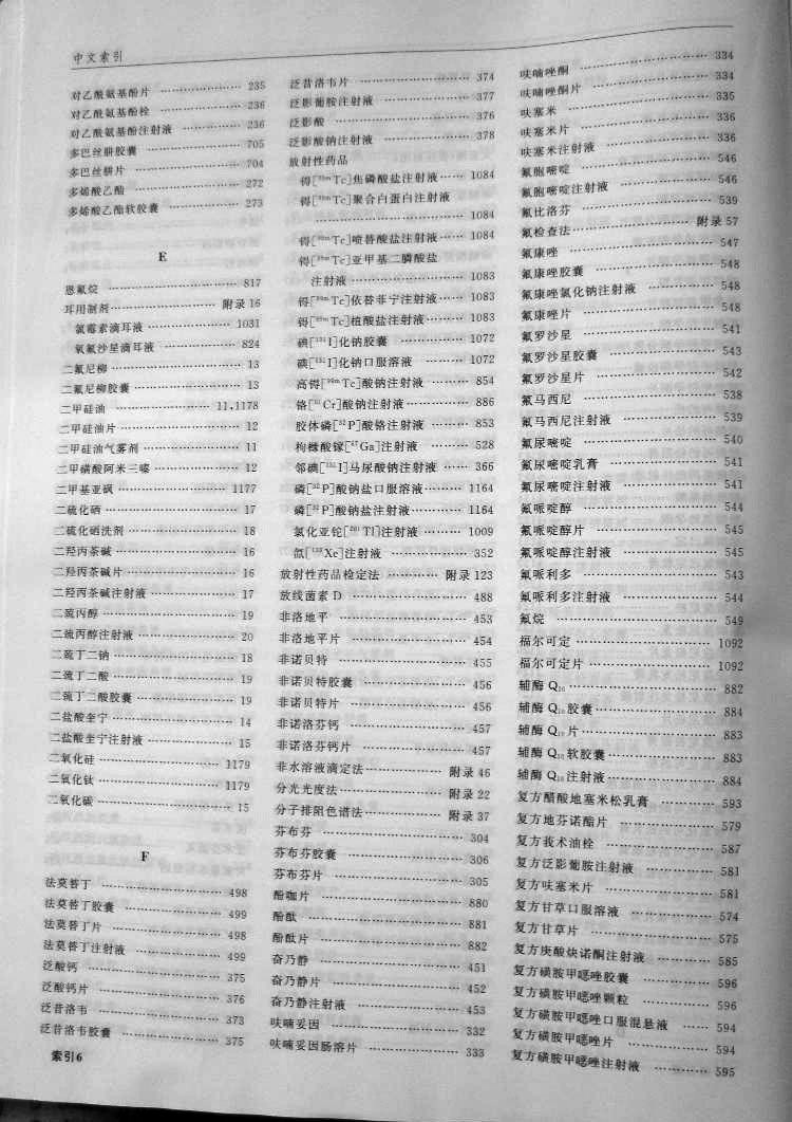 中文索引
对乙酰氨基酚片 …… 235
对乙酰氨基酚栓 …… 236
对乙酰氨基酚注射液 …… 236
多巴丝肼胶囊 …… 705
多巴丝肼片 …… 704
多烯酸乙酯 …… 272
多烯酸乙酯软胶囊 …… 273
E
恩氟烷 …… 817
耳用制剂 …… 附录 16
氯霉素滴耳液 …… 1031
氧氟沙星滴耳液 …… 824
二氟尼柳 …… 13
二氟尼柳胶囊 …… 13
二甲硅油 …… 11,1178
二甲硅油片 …… 12
二甲硅油气雾剂 …… 11
二甲磺酸阿米三嗪 …… 12
二甲基亚砜 …… 1177
二硫化硒 …… 17
二硫化硒洗剂 …… 18
二羟丙茶碱 …… 16
二羟丙茶碱片 …… 16
二羟丙茶碱注射液 …… 17
二巯丙醇 …… 19
二巯丙醇注射液 …… 20
二巯丁二钠 …… 18
二巯丁二酸 …… 19
二巯丁二酸胶囊 …… 19
二盐酸奎宁 …… 14
二盐酸奎宁注射液 …… 15
二氧化硅 …… 1179
二氧化钛 …… 1179
二氧化碳 …… 15
F
法莫替丁 …… 498
法莫替丁胶囊 …… 499
法莫替丁片 …… 498
法莫替丁注射液 …… 499
泛酸钙 …… 375
泛酸钙片 …… 376
泛昔洛韦 …… 373
泛昔洛韦胶囊 …… 375
索引6
泛昔洛韦片 …… 374
泛影葡胺注射液 …… 377
泛影酸 …… 376
泛影酸钠注射液 …… 378
放射性药品
锝[99mTc]焦磷酸盐注射液 …… 1084
锝[99mTc]聚合白蛋白注射液
…… 1084
锝[99mTc]喷替酸盐注射液 …… 1084
锝[99mTc]亚甲基二膦酸盐
注射液 …… 1083
锝[99mTc]依替菲宁注射液 …… 1083
锝[99mTc]植酸盐注射液 …… 1083
碘[131I]化钠胶囊 …… 1072
碘[131I]化钠口服溶液 …… 1072
高锝[99mTc]酸钠注射液 …… 854
铬[51Cr]酸钠注射液 …… 886
胶体磷[32P]酸铬注射液 …… 853
枸橼酸镓[67Ga]注射液 …… 528
邻碘[131I]马尿酸钠注射液 …… 366
磷[32P]酸钠盐口服溶液 …… 1164
磷[32P]酸钠盐注射液 …… 1164
氯化亚铊[201Tl]注射液 …… 1009
氙[133Xe]注射液 …… 352
放射性药品检定法 …… 附录 123
放线菌素 D …… 488
非洛地平 …… 453
非洛地平片 …… 454
非诺贝特 …… 455
非诺贝特胶囊 …… 456
非诺贝特片 …… 456
非诺洛芬钙 …… 457
非诺洛芬钙片 …… 457
非水溶液滴定法 …… 附录 46
分光光度法 …… 附录 22
分子排阻色谱法 …… 附录 37
芬布芬 …… 304
芬布芬胶囊 …… 306
芬布芬片 …… 305
酚咖片 …… 880
酚酞 …… 881
酚酞片 …… 882
奋乃静 …… 451
奋乃静片 …… 452
奋乃静注射液 …… 453
呋喃妥因 …… 332
呋喃妥因肠溶片 …… 333
呋喃唑酮 …… 334
呋喃唑酮片 …… 334
呋塞米 …… 335
呋塞米片 …… 336
呋塞米注射液 …… 336
氟胞嘧啶 …… 546
氟胞嘧啶注射液 …… 546
氟比洛芬 …… 539
氟检查法 …… 附录 57
氟康唑 …… 547
氟康唑胶囊 …… 548
氟康唑氯化钠注射液 …… 548
氟康唑片 …… 548
氟罗沙星 …… 541
氟罗沙星胶囊 …… 543
氟罗沙星片 …… 542
氟马西尼 …… 538
氟马西尼注射液 …… 539
氟尿嘧啶 …… 540
氟尿嘧啶乳膏 …… 541
氟尿嘧啶注射液 …… 541
氟哌啶醇 …… 544
氟哌啶醇片 …… 545
氟哌啶醇注射液 …… 545
氟哌利多 …… 543
氟哌利多注射液 …… 544
氟烷 …… 549
福尔可定 …… 1092
福尔可定片 …… 1092
辅酶 Q10 …… 882
辅酶 Q10胶囊 …… 884
辅酶 Q10片 …… 883
辅酶 Q10软胶囊 …… 883
辅酶 Q10注射液 …… 884
复方醋酸地塞米松乳膏 …… 593
复方地芬诺酯片 …… 579
复方莪术油栓 …… 587
复方泛影葡胺注射液 …… 581
复方呋塞米片 …… 581
复方甘草口服溶液 …… 574
复方甘草片 …… 575
复方庚酸炔诺酮注射液 …… 585
复方磺胺甲噁唑胶囊 …… 596
复方磺胺甲噁唑颗粒 …… 596
复方磺胺甲噁唑口服混悬液 …… 594
复方磺胺甲噁唑片 …… 594
复方磺胺甲噁唑注射液 …… 595